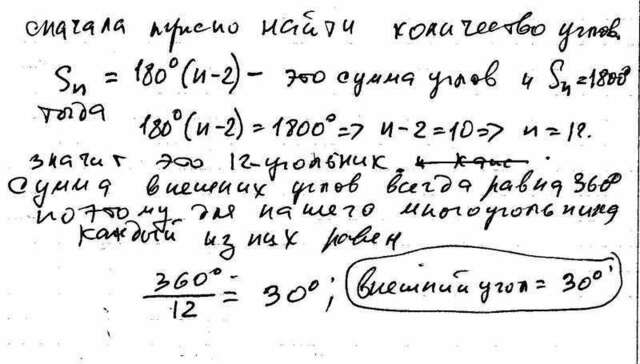 сначала нужно найти количество углов
Sₙ = 180°(n-2) - это сумма углов и Sₙ=1800°
тогда
180°(n-2) = 1800° => n-2=10 => n=12.
значит это 12-угольник.
Сумма внешних углов всегда равна 360°
поэтому для нашего многоугольника
каждый из них равен
360°/12 = 30°; внешний угол = 30°